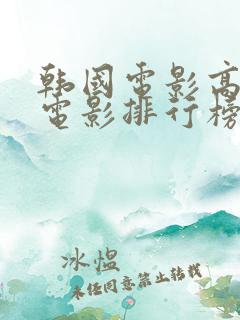 韩国电影高
电影排行榜
冰煴
未经同意禁止转载